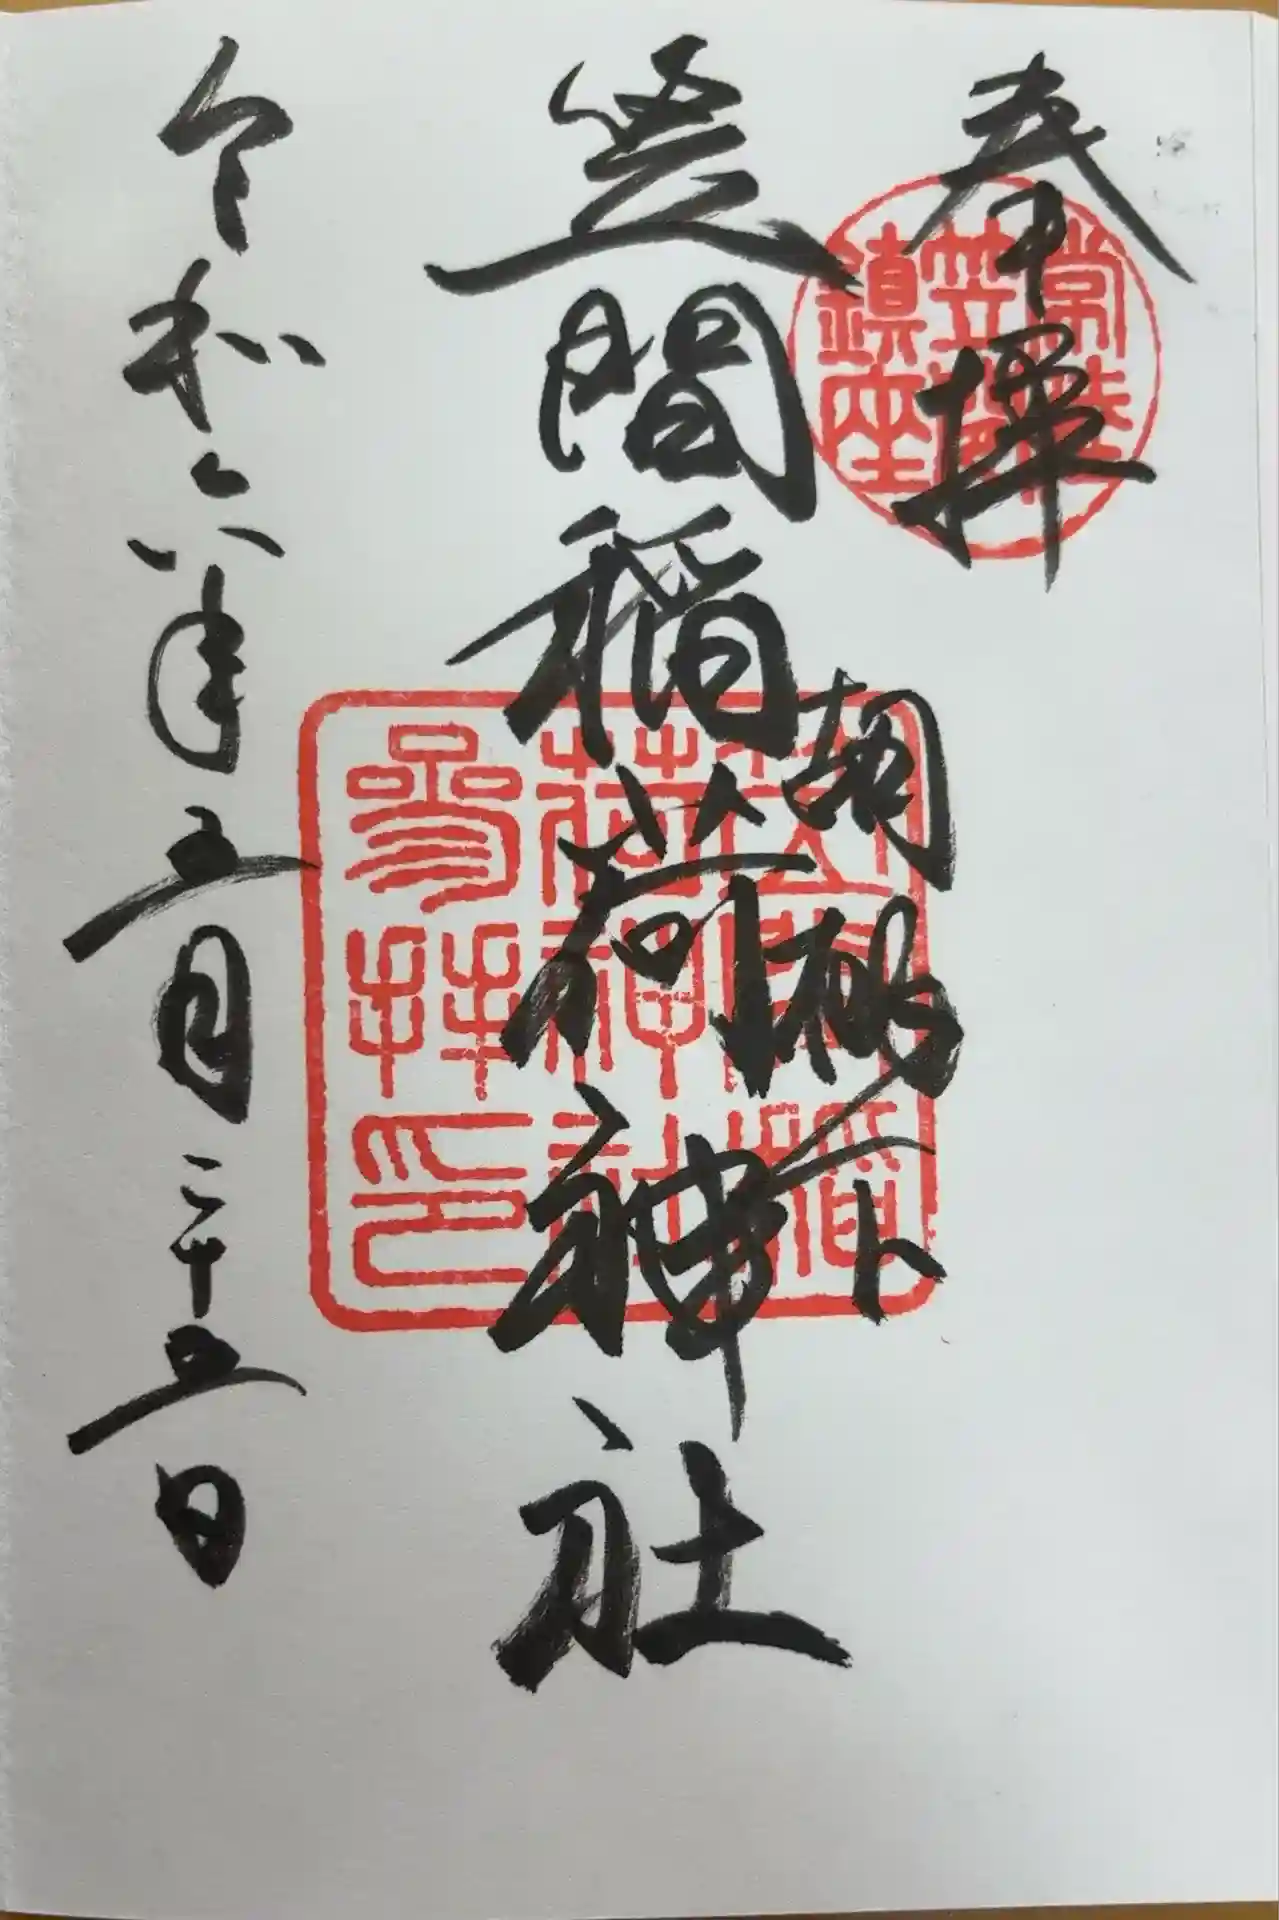 奉拝
常陸
笠間
鎮座
胡桃下
笠間稲荷神社
笠間稲
荷神社
参拝印
令和六年五月二十五日